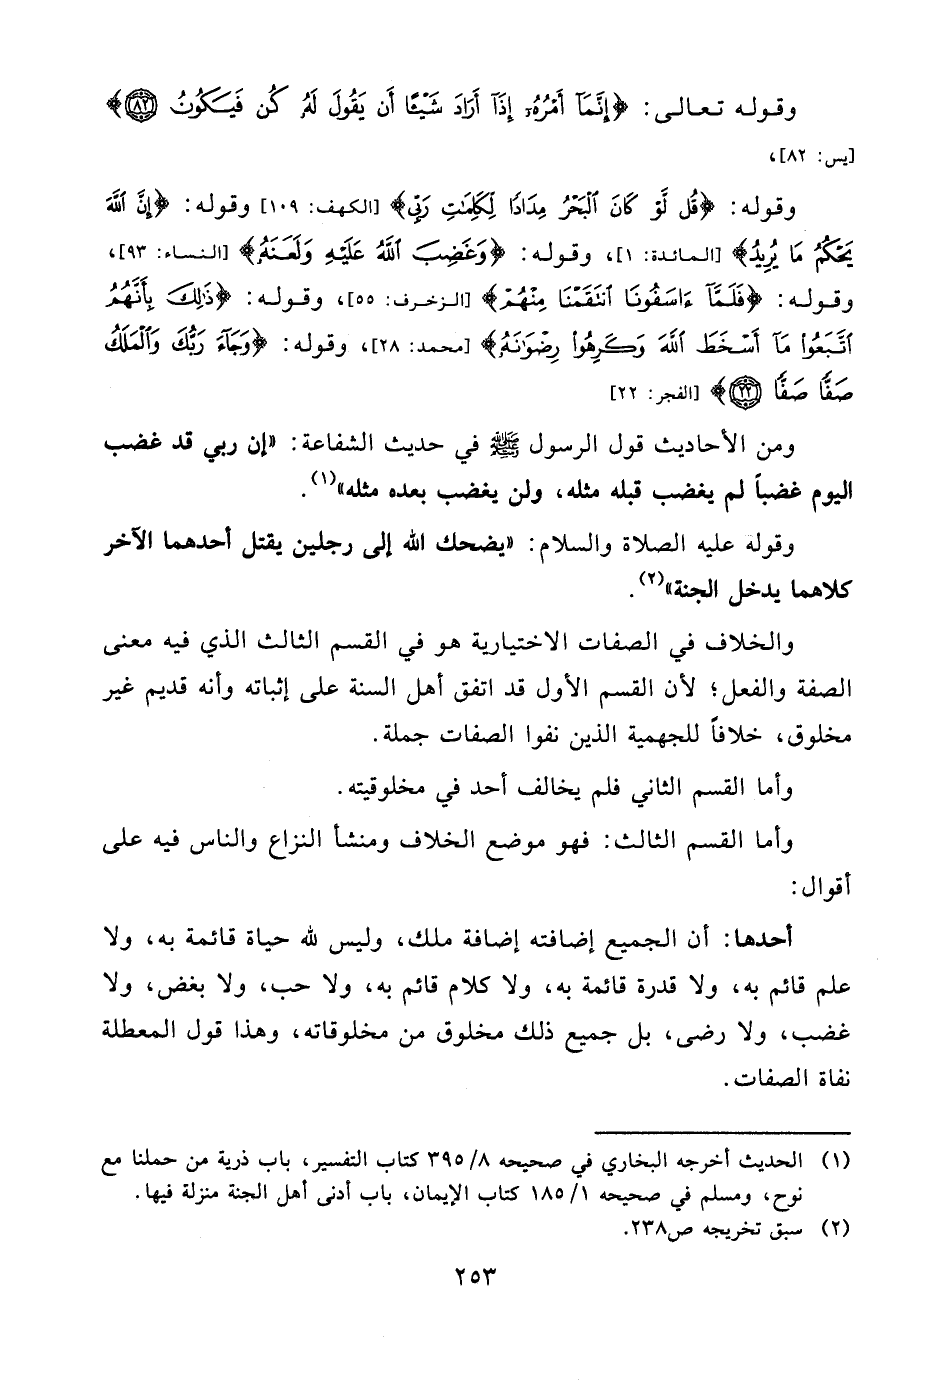 وقوله تعالى: ﴿إِنَّمَآ أَمْرُهُۥٓ إِذَآ أَرَادَ شَيْـًٔا أَن يَقُولَ لَهُۥ كُن فَيَكُونُ ۝٨٢﴾
[يس: ٨٢]،
وقوله: ﴿قُل لَّوْ كَانَ ٱلْبَحْرُ مِدَادًا لِّكَلِمَٰتِ رَبِّى﴾ [الكهف: ١٠٩] وقوله: ﴿إِنَّ ٱللَّهَ
يَحْكُمُ مَا يُرِيدُ﴾ [المائدة: ١]، وقوله: ﴿وَغَضِبَ ٱللَّهُ عَلَيْهِ وَلَعَنَهُۥ﴾ [النساء: ٩٣]،
وقوله: ﴿فَلَمَّآ ءَاسَفُونَا ٱنتَقَمْنَا مِنْهُمْ﴾ [الزخرف: ٥٥]، وقوله: ﴿ذَٰلِكَ بِأَنَّهُمُ
ٱتَّبَعُوا۟ مَآ أَسْخَطَ ٱللَّهَ وَكَرِهُوا۟ رِضْوَٰنَهُۥ﴾ [محمد: ٢٨]، وقوله: ﴿وَجَآءَ رَبُّكَ وَٱلْمَلَكُ
صَفًّا صَفًّا ۝٢٢﴾ [الفجر: ٢٢]
ومن الأحاديث قول الرسول ﷺ في حديث الشفاعة: «إن ربي قد غضب
اليوم غضباً لم يغضب قبله مثله، ولن يغضب بعده مثله»(١).
وقوله عليه الصلاة والسلام: «يضحك الله إلى رجلين يقتل أحدهما الآخر
كلاهما يدخل الجنة»(٢).
والخلاف في الصفات الاختيارية هو في القسم الثالث الذي فيه معنى
الصفة والفعل؛ لأن القسم الأول قد اتفق أهل السنة على إثباته وأنه قديم غير
مخلوق، خلافاً للجهمية الذين نفوا الصفات جملة.
وأما القسم الثاني فلم يخالف أحد في مخلوقيته.
وأما القسم الثالث: فهو موضع الخلاف ومنشأ النزاع والناس فيه على
أقوال:
أحدها: أن الجميع إضافته إضافة ملك، وليس لله حياة قائمة به، ولا
علم قائم به، ولا قدرة قائمة به، ولا كلام قائم به، ولا حب، ولا بغض، ولا
غضب، ولا رضى، بل جميع ذلك مخلوق من مخلوقاته، وهذا قول المعطلة
نفاة الصفات.
(١) الحديث أخرجه البخاري في صحيحه ٨/ ٣٩٥ كتاب التفسير، باب ذرية من حملنا مع
نوح، ومسلم في صحيحه ١/ ١٨٥ كتاب الإيمان، باب أدنى أهل الجنة منزلة فيها.
(٢) سبق تخريجه ص٢٣٨.
٢٥٣